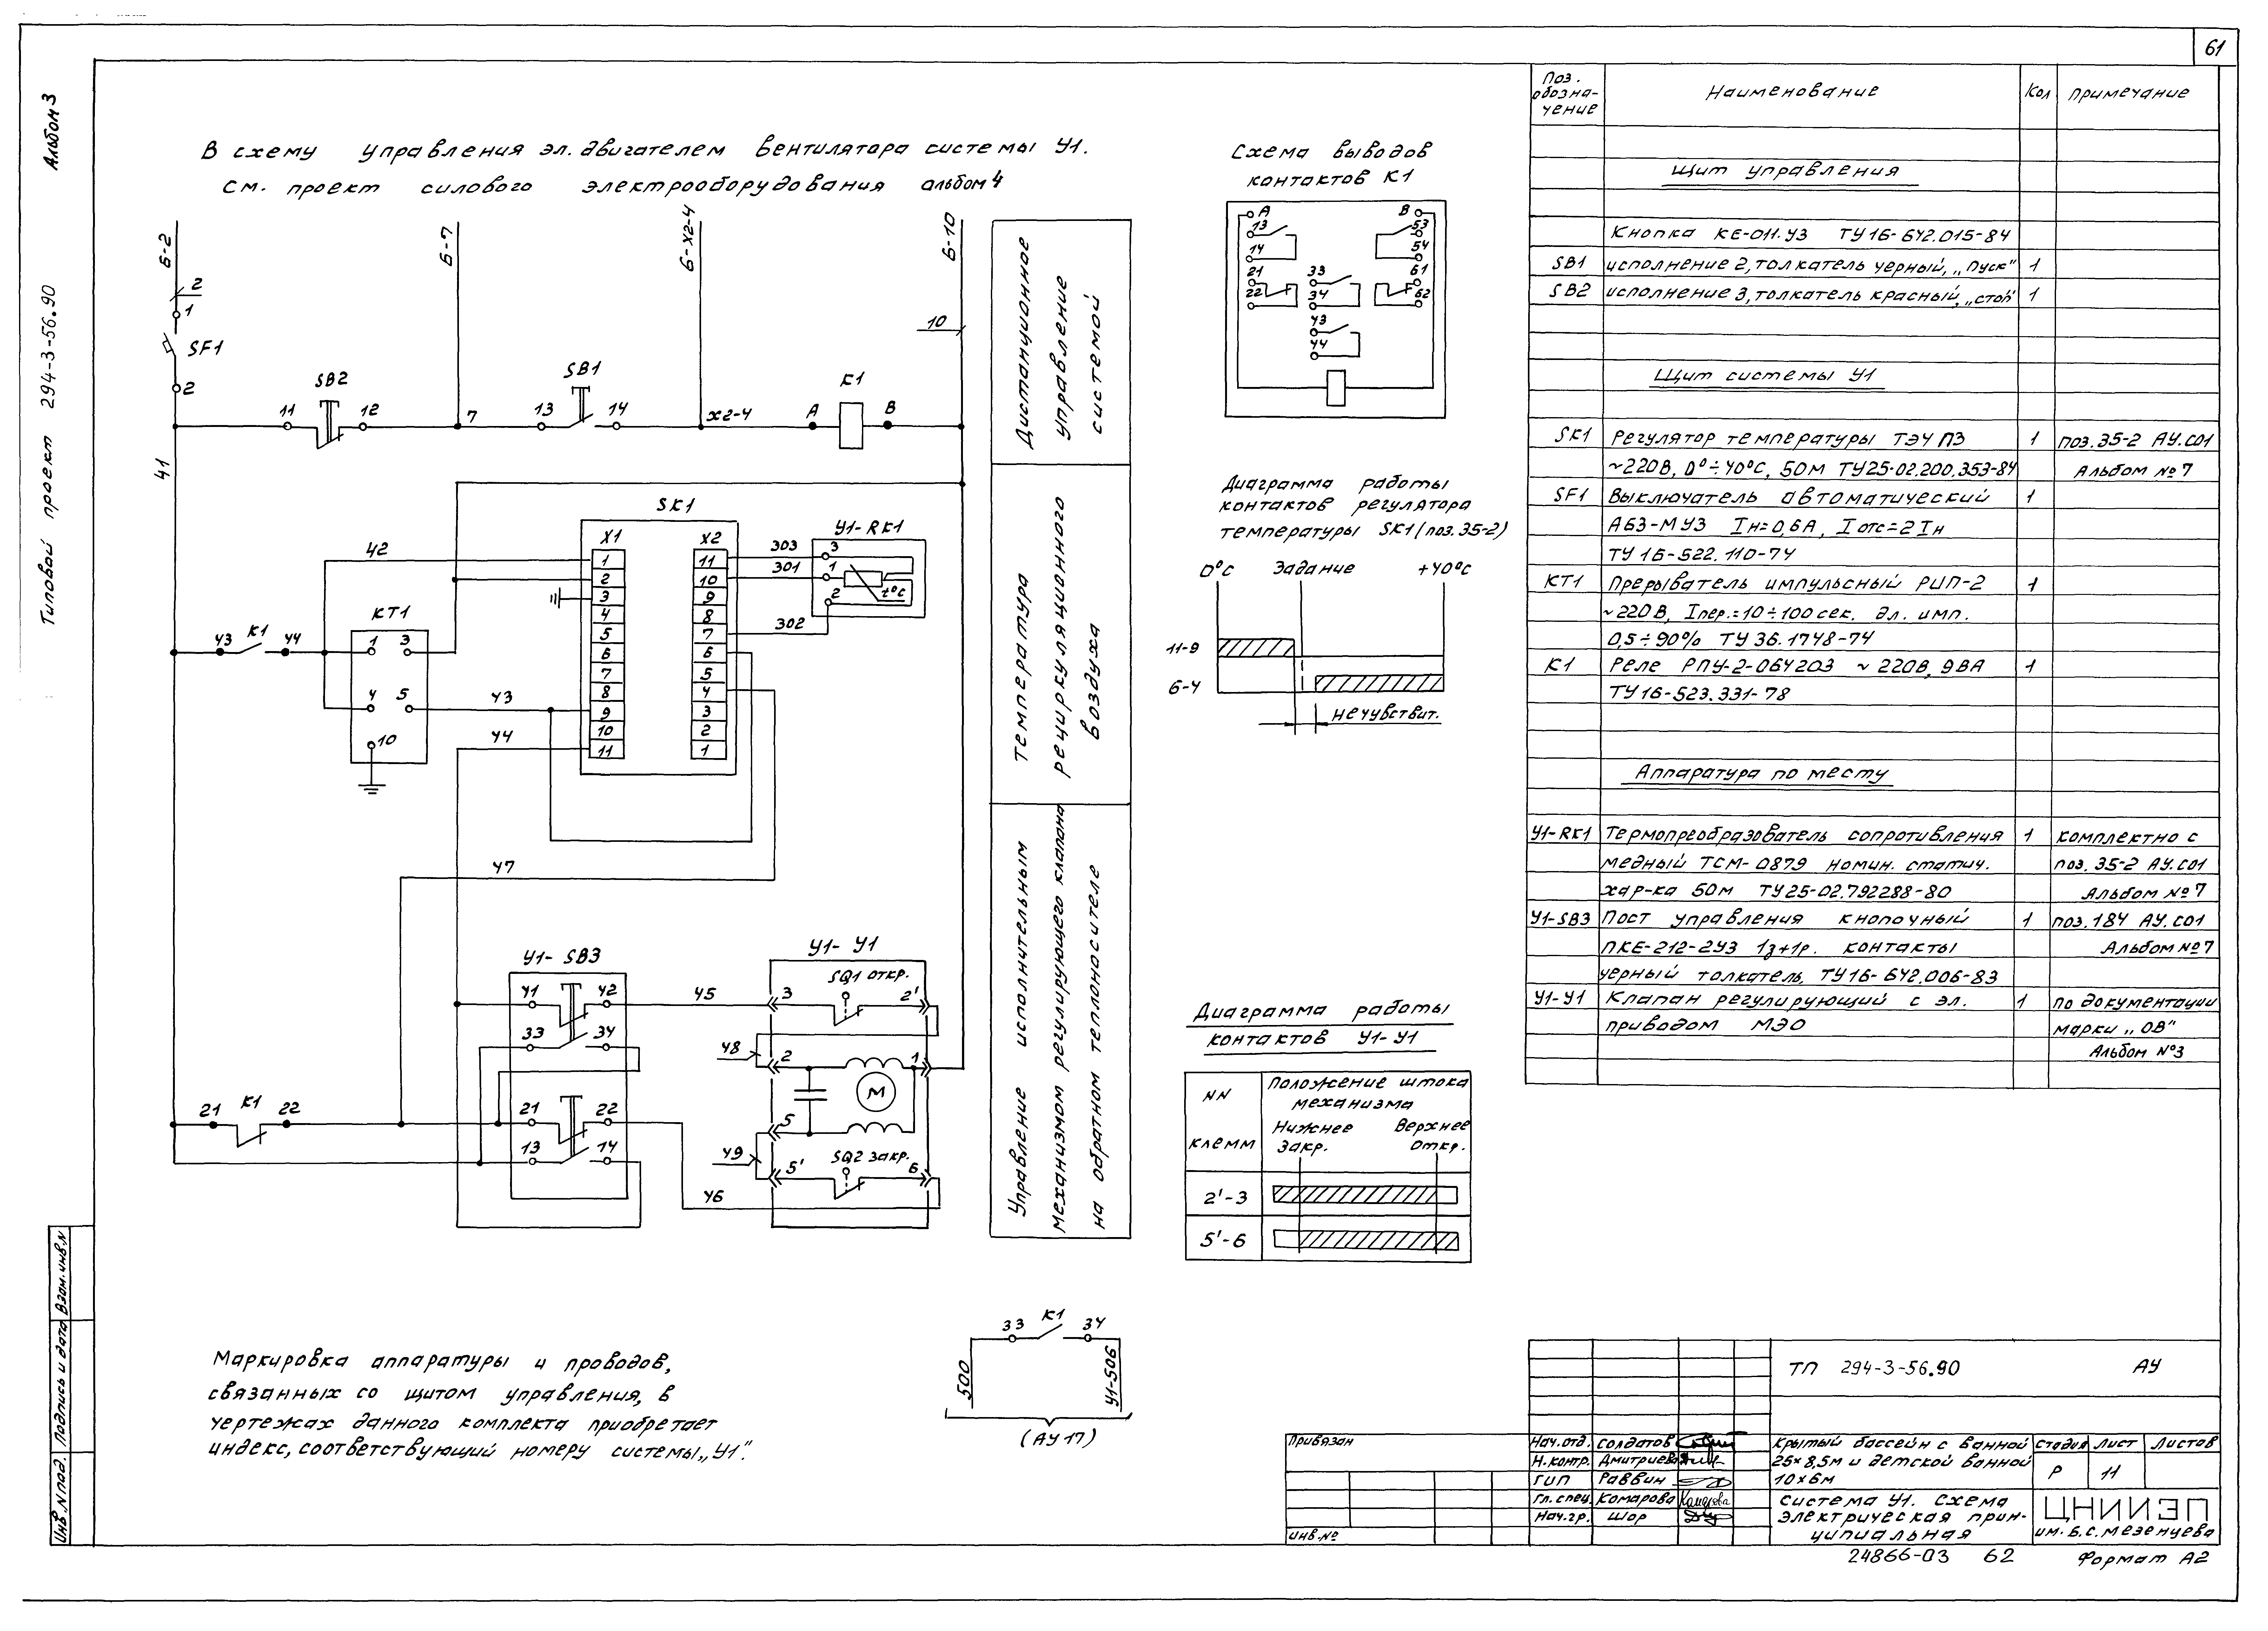 61
Альбом 3
Типовой проект 294-3-56.90
В схему управления эл. двигателем вентилятора системы У1.
См. проект силового электрооборудования альбом 4
Б-2
Б-7
Б-Х2-4
Б-10
2
1
SF1
2
10
SB2
11
12
7
SB1
13
14
Х2-4
К1
А
В
41
Дистанционное
управление
системой
SK1
Х1
Х2
1
2
3
4
5
6
7
8
9
10
11
11
10
9
8
7
6
5
4
3
2
1
42
303
301
302
У1-RK1
3
1
2
t°C
КТ1
1 3
4 5
10
43 К1 44
43
44
47
Температура
рециркуляционного
воздуха
У1-SB3
41 42
33 34
21 22
13 14
21 К1 22
45
48
49
46
У1-У1
SQ1 откр.
3 2'
2 1
М
5
SQ2 закр.
5' 6
Управление исполнительным
механизмом регулирующего клапана
на обратном теплоносителе
Схема выводов
контактов К1
А В
13 53
14 54
21 33 61
22 34 62
43
44
Диаграмма работы
контактов регулятора
температуры SK1 (поз.35-2)
0°С Задание +40°С
11-9
6-4
нечувствит.
Диаграмма работы
контактов У1-У1
NN
клемм
Положение штока
механизма
Нижнее Верхнее
Закр. Откр.
2'-3
5'-6
33 К1 34
500
У1-506
(АУ 17)
Маркировка аппаратуры и проводов,
связанных со щитом управления, в
чертежах данного комплекта приобретает
индекс, соответствующий номеру системы „У1“.
Поз.
обозна-
чение
Наименование
Кол
примечание
Щит управления
Кнопка КЕ-011.У3 ТУ16-642.015-84
SB1 исполнение 2, толкатель черный, „пуск“ 1
SB2 исполнение 3, толкатель красный, „стоп“ 1
Щит системы У1
SK1 Регулятор температуры ТЭ4 П3 1 поз.35-2 АУ.С01
~220В, 0°÷40°С, 50М ТУ25-02.200.353-84 Альбом №7
SF1 Выключатель автоматический 1
А63-МУ3 Iн=0,6А, Iотс=2Iн
ТУ 16-522.110-74
КТ1 Прерыватель импульсный РИП-2 1
~220В, Iпер.=10÷100 сек. дл. имп.
0,5÷90% ТУ 36.1748-74
К1 Реле РПУ-2-064203 ~220В, 9ВА 1
ТУ16-523.331-78
Аппаратура по месту
У1-RK1 Термопреобразователь сопротивления 1 комплектно с
медный ТСМ-0879 номин. статич. поз. 35-2 АУ.С01
хар-ка 50М ТУ25-02.792288-80 Альбом №7
У1-SB3 Пост управления кнопочный 1 поз.184 АУ.С01
ПКЕ-212-2У3 1з+1р. контакты Альбом №7
черный толкатель, ТУ16-642.006-83
У1-У1 Клапан регулирующий с эл. 1 по документации
приводом МЭО марки „ОВ“
Альбом №3
ТП 294-3-56.90 АУ
Привязан
инв.№
Нач.отд. Солдатов
Н.контр. Дмитриева
ГИП Раввин
Гл.спец. Комарова
Нач.гр. Шор
Крытый бассейн с ванной
25×8,5м и детской ванной
10×6м
Стадия Лист Листов
Р 11
Система У1. Схема
электрическая прин-
ципиальная
ЦНИИЭП
им. Б.С. Мезенцева
24866-03 62 Формат А2
Взам.инв.N
Подпись и дата
Инв.N под.